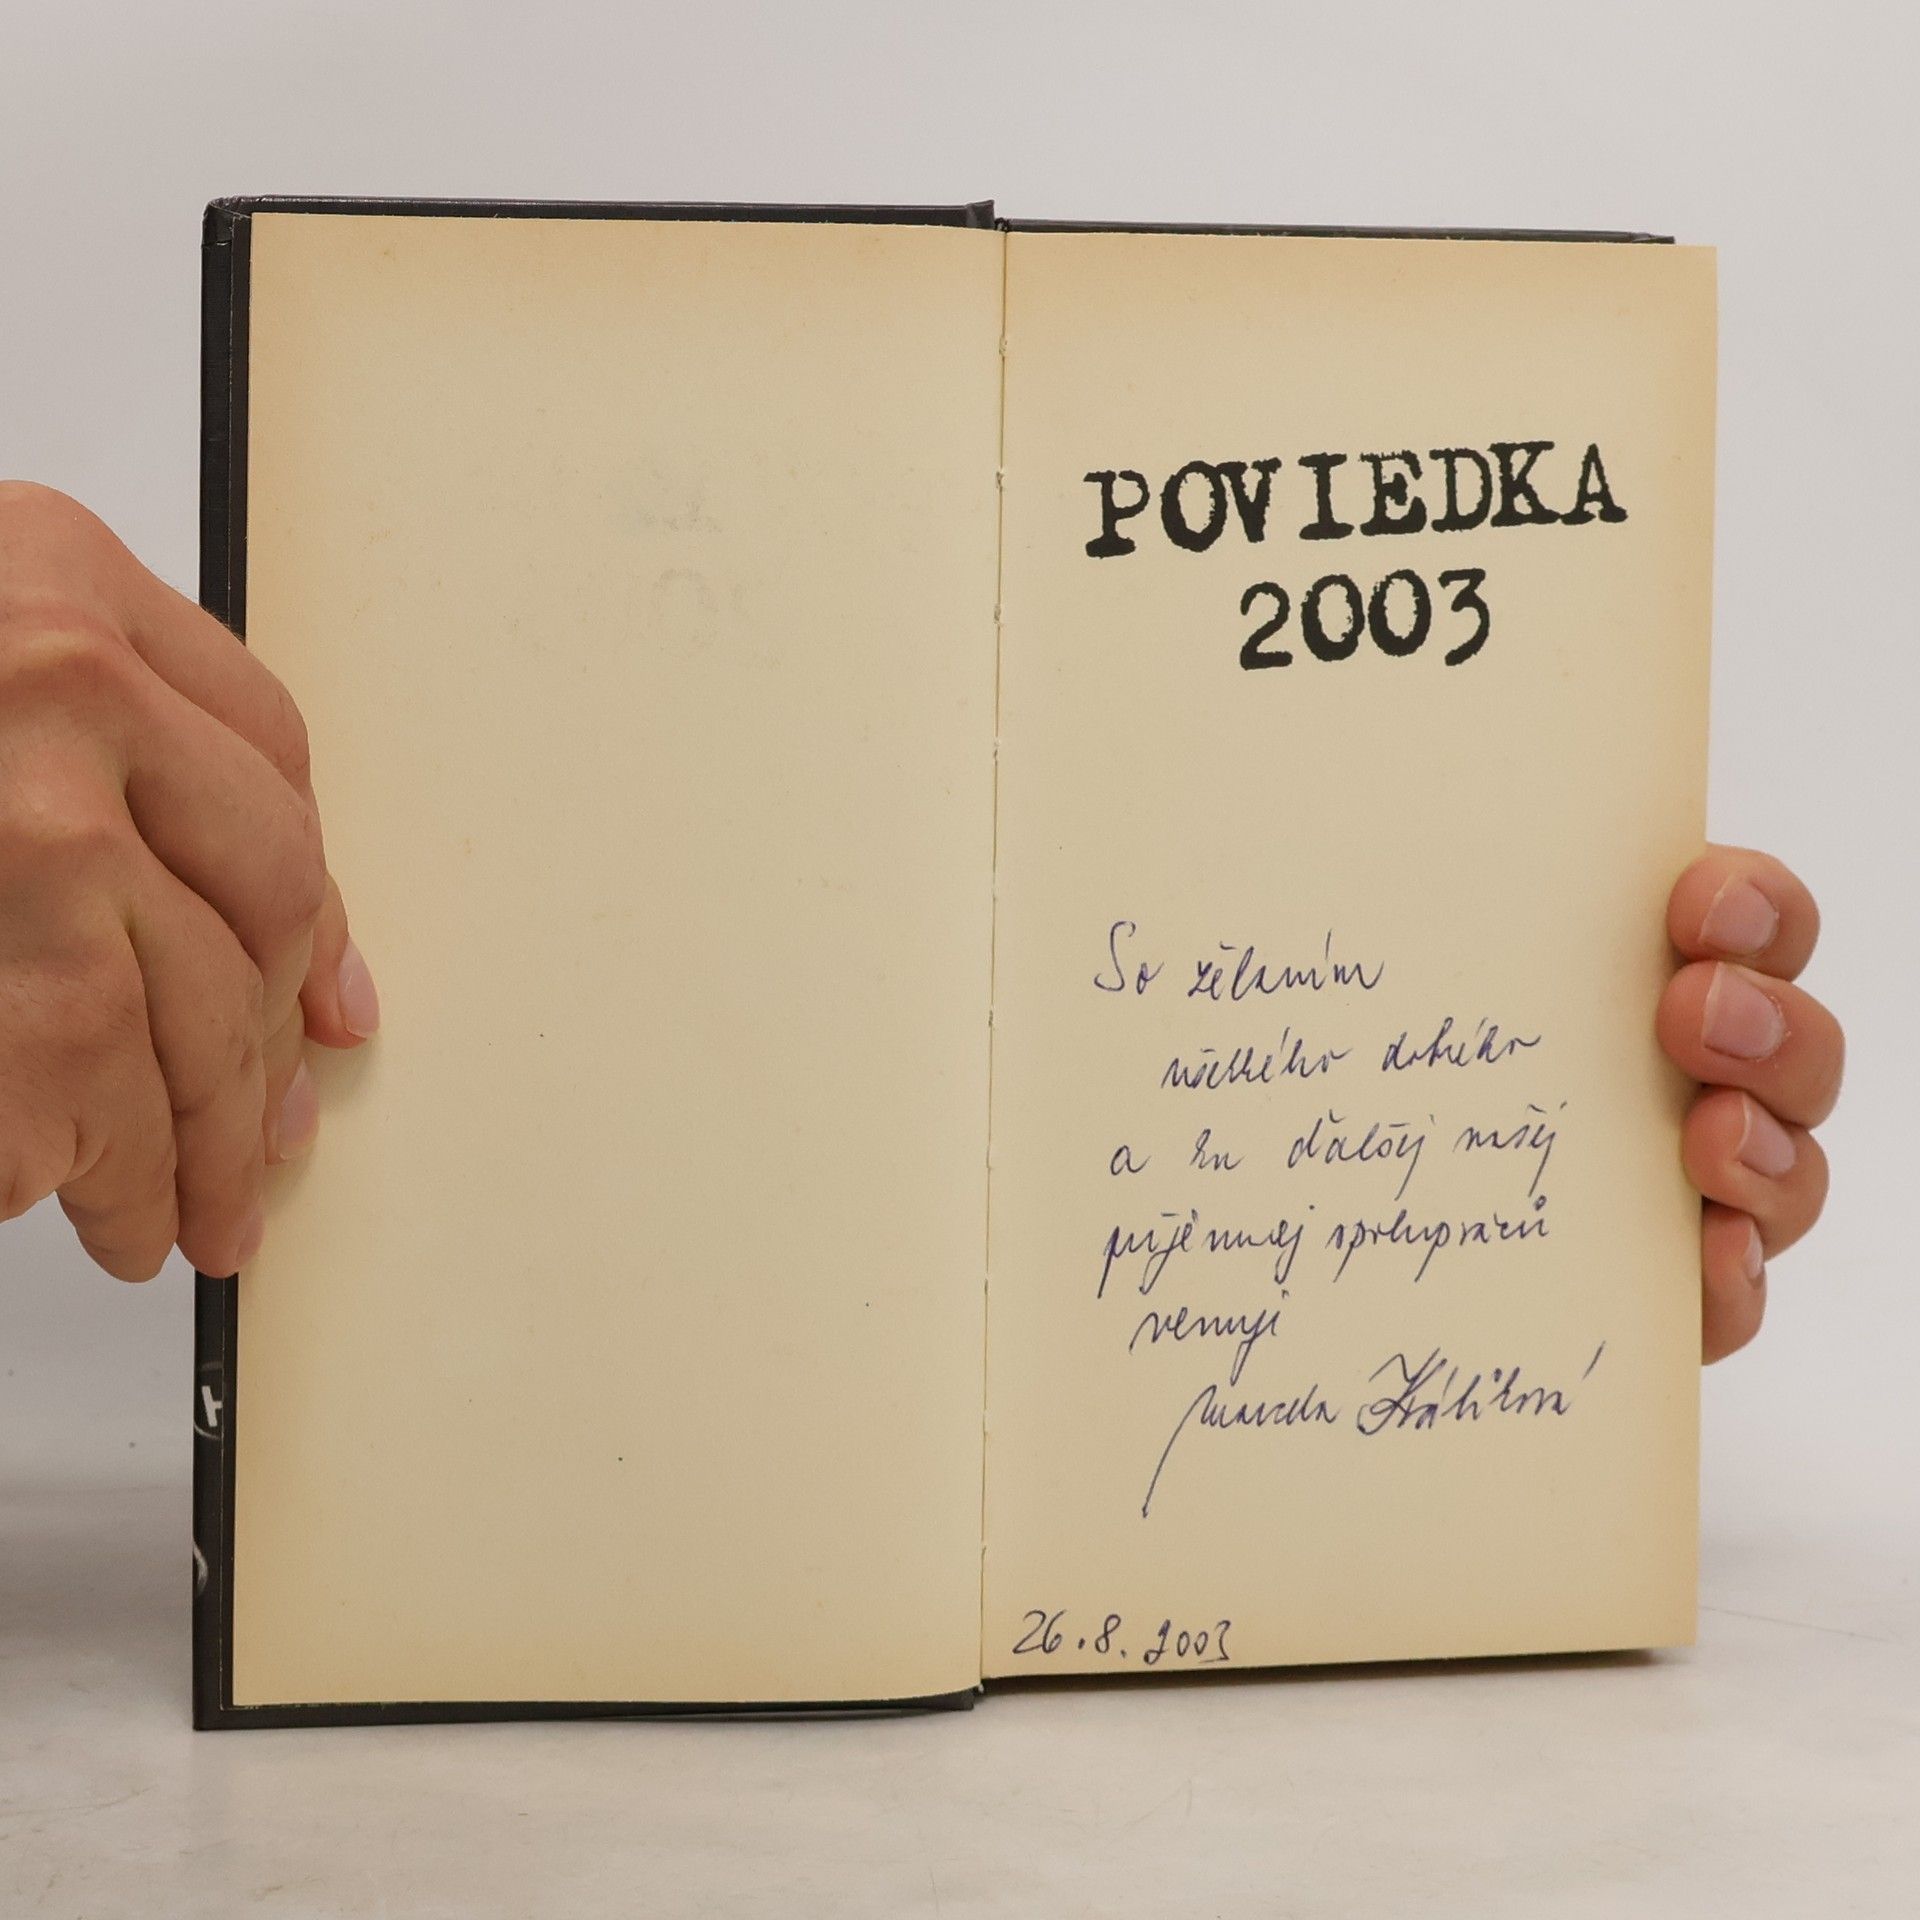 POVIEDKA
2003
So želaním
všetkého dobrého
a ku ďalšej našej
príjemnej spolupráci
venuje
Marcela Králiková
26.8.2003
H